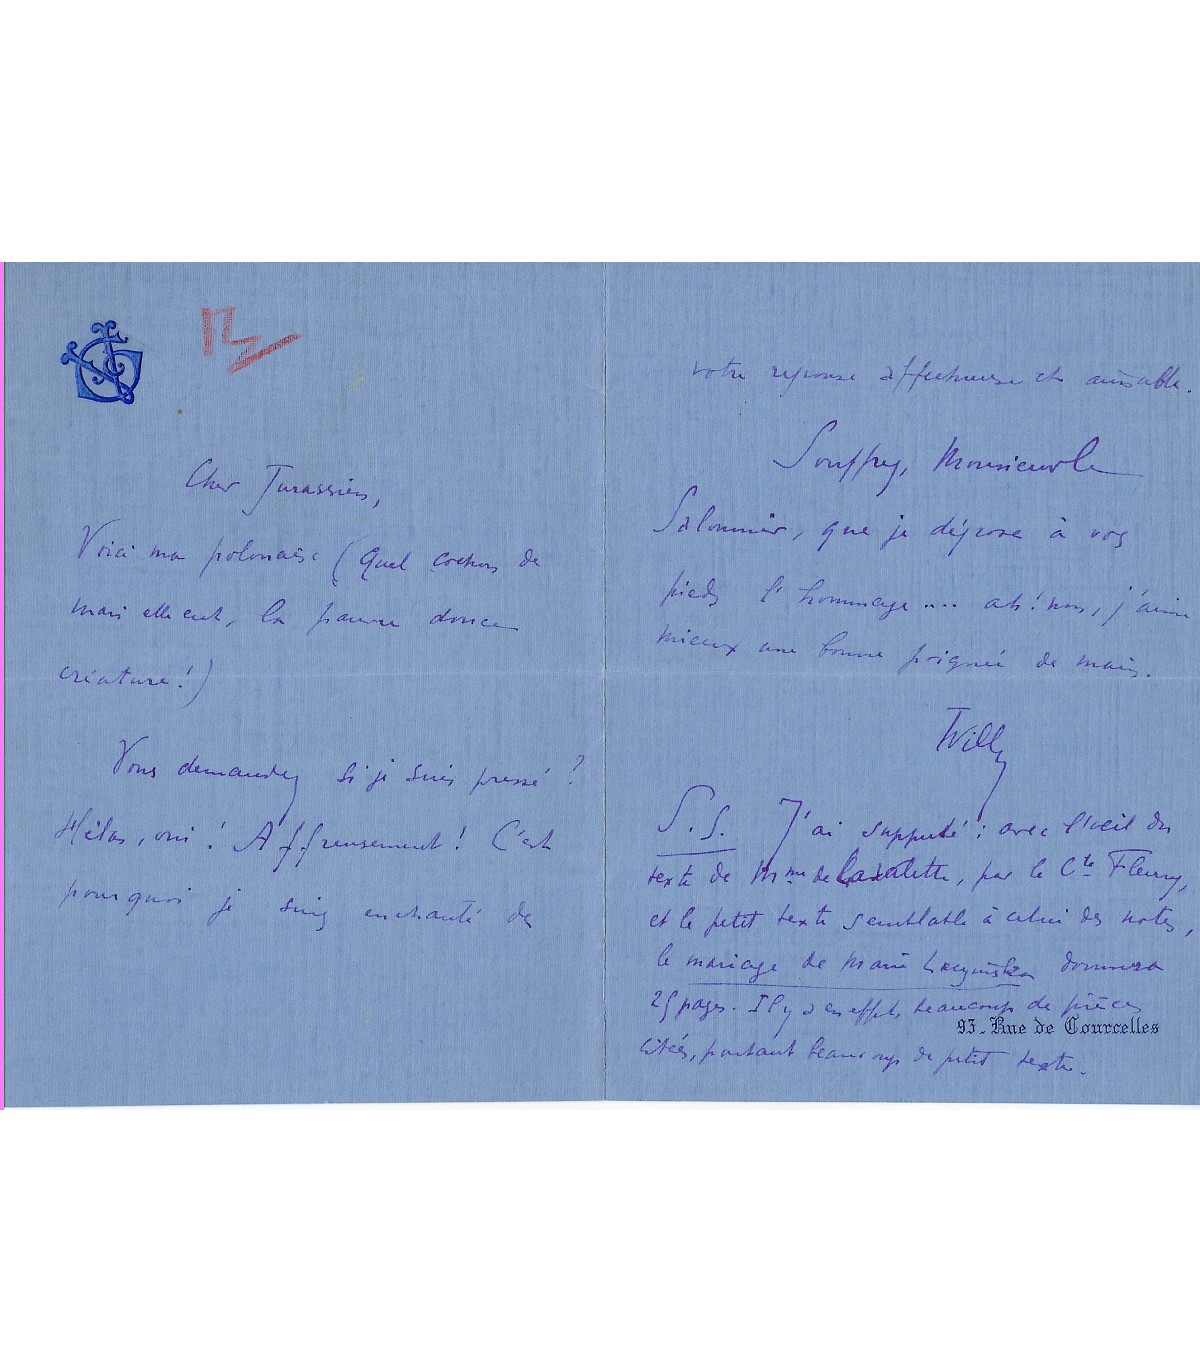 Cher Jurassien,
Voici ma polonaise (Quel cochon de
mari elle eut, la pauvre douce
créature!)
Vous demandez si je suis pressé?
Hélas, oui! Affreusement! C'est
pourquoi je suis enchanté de
votre réponse affectueuse et aimable.
Souffrez, Monsieur le
Salonnier, que je dépose à vos
pieds l'hommage.... ah! non, j'aime
mieux une bonne poignée de main.
Willy
P.S. J'ai supputé: avec l'œil du
texte de Mme de Lavalette, par le Cte Fleury,
et le petit texte semblable à celui des notes,
le mariage de Marie Leczinska donnera
25 pages. Il y a en effet, beaucoup de pièces
93 - Rue de Courcelles
citées, partant beaucoup de petit texte.